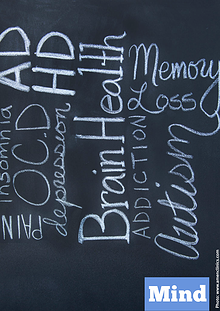 ADHD
Memory
Loss
Insomnia
OCD
depression
PAIN
Brain Health
ADDICTION
Autism
Mind
Photo: www.amenclinics.com